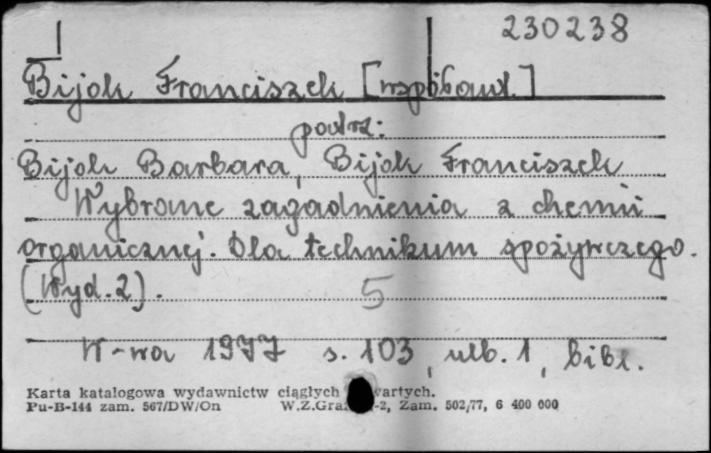 230238
Bijok Franciszek [współaut.]
patrz:
Bijok Barbara, Bijok Franciszek
Wybrane zagadnienia z chemii
organicznej. Dla technikum spożywczego.
(Wyd. 2).
5
W-wa 1977 s. 103, nlb. 1, bibl.
Karta katalogowa wydawnictw ciągłych wartych.
Pu-B-144 zam. 567/DW/On W.Z.Graf -2, Zam. 502/77, 6 400 000